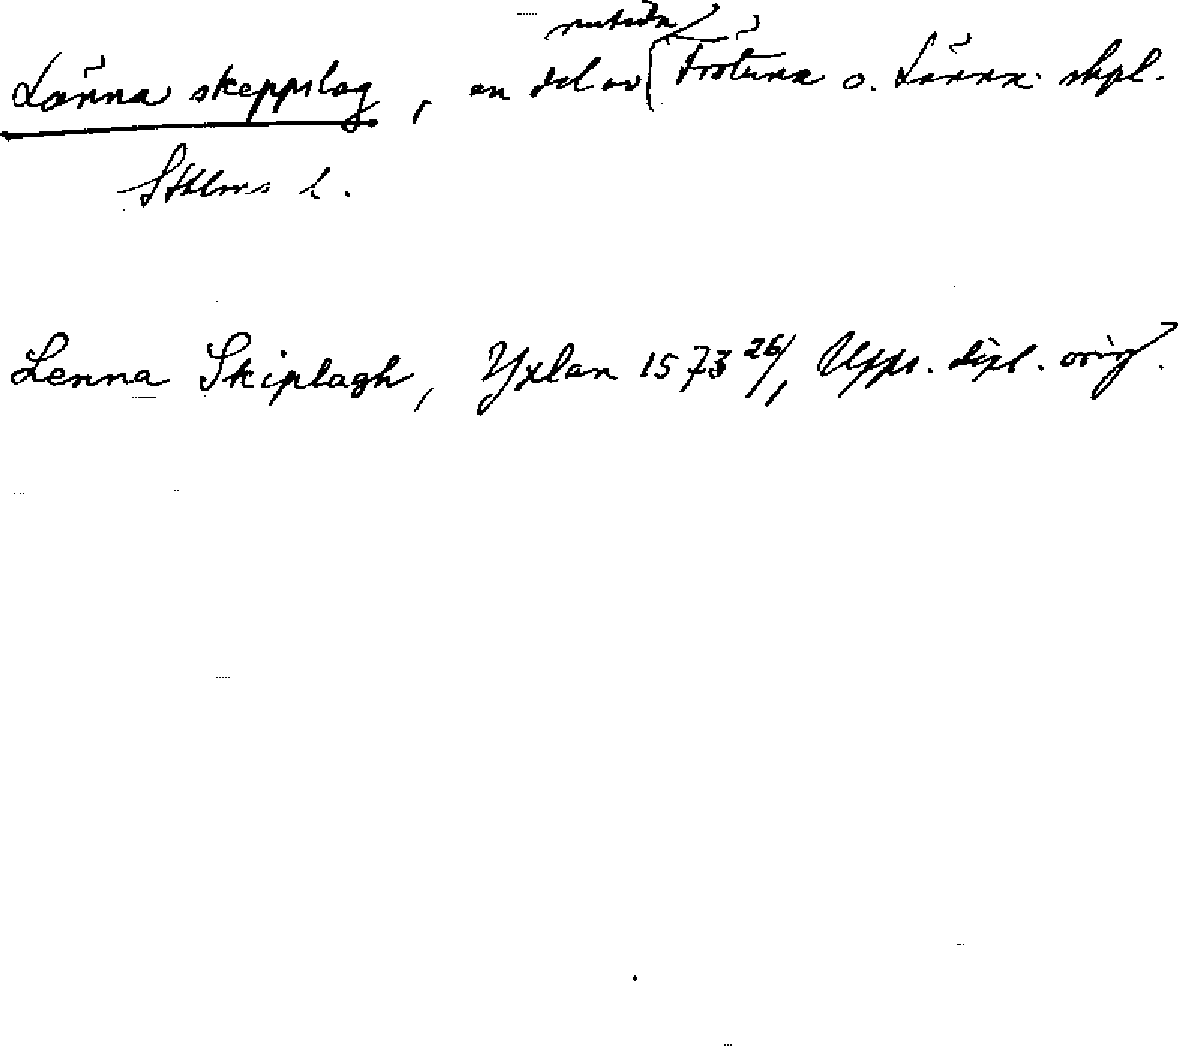 nutida
Länna skeppslag, en del av Frötuna o. Länna skpl.
Sthlms l.
Lenna Skiplagh, Yxlan 1573 26/, Upps. dipl. orig.